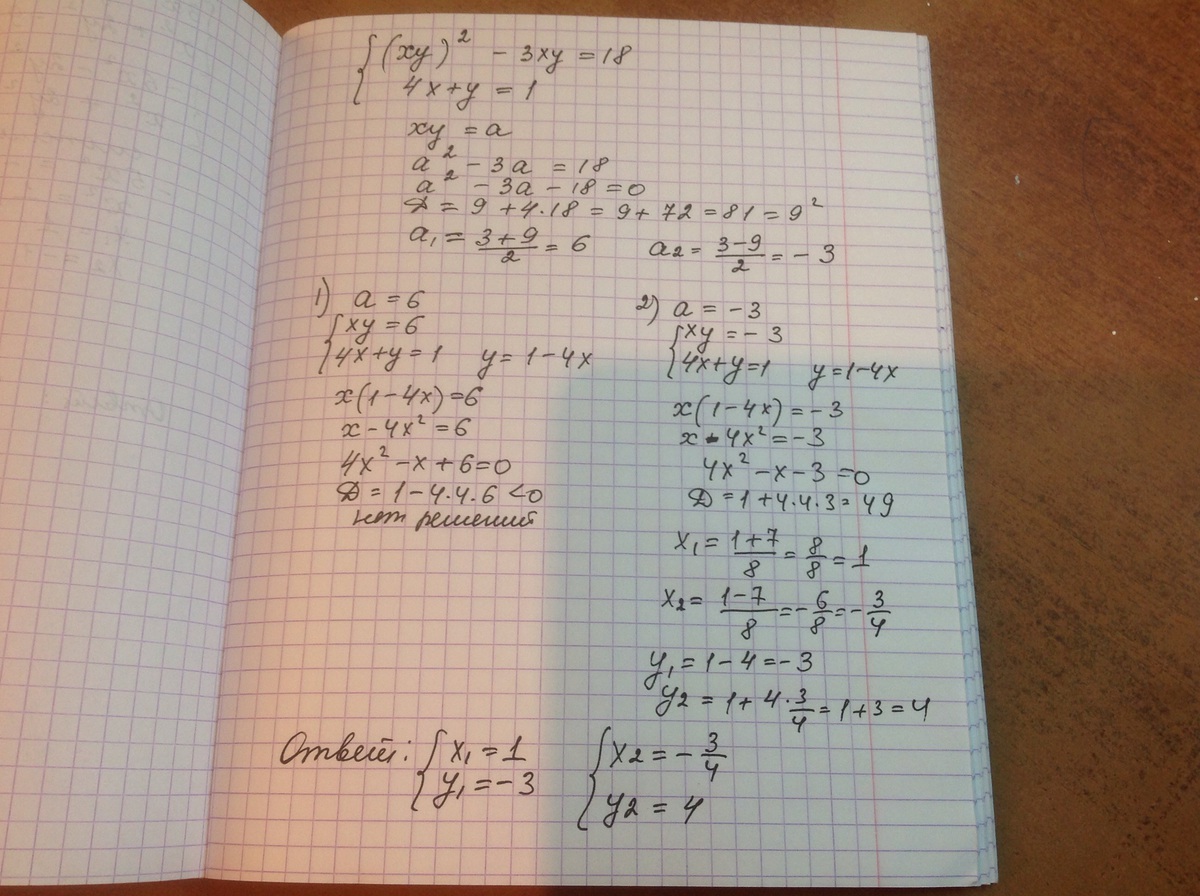 (xy)² - 3xy = 18
4x+y = 1
xy = a
a² - 3a = 18
a² - 3a - 18 = 0
D = 9 + 4·18 = 9 + 72 = 81 = 9²
a₁ = (3+9)/2 = 6    a₂ = (3-9)/2 = -3
1) a = 6
xy = 6
4x+y=1    y = 1-4x
x(1-4x)=6
x - 4x² = 6
4x² - x + 6 = 0
D = 1 - 4·4·6 < 0
нет решений
2) a = -3
xy = -3
4x+y=1    y=1-4x
x(1-4x) = -3
x - 4x² = -3
4x² - x - 3 = 0
D = 1 + 4·4·3 = 49
x₁ = (1+7)/8 = 8/8 = 1
x₂ = (1-7)/8 = -6/8 = -3/4
y₁ = 1 - 4 = -3
y₂ = 1 + 4·3/4 = 1 + 3 = 4
Ответ: { x₁ = 1    { x₂ = -3/4
y₁ = -3    y₂ = 4